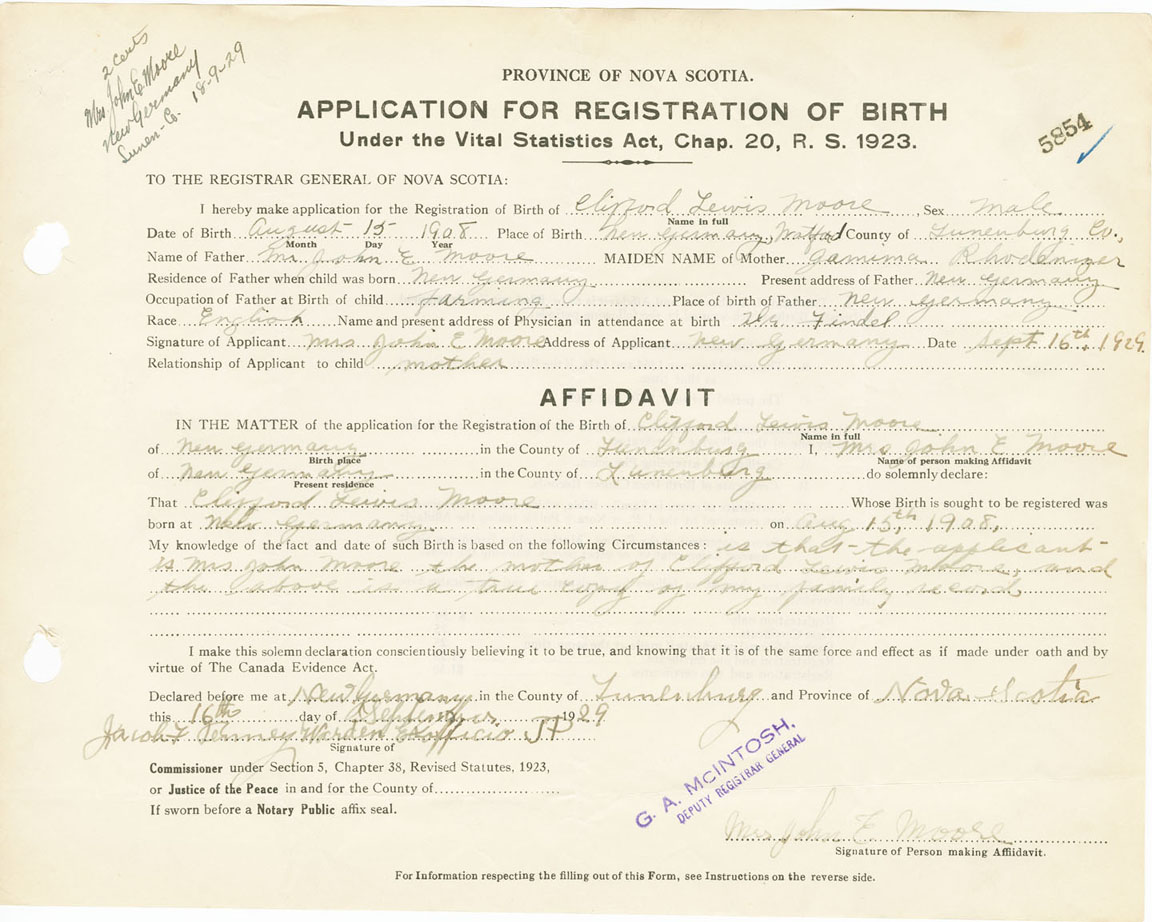 2 Certs
Mrs John E Moore
New Germany
Lunen- Co.
18-9-29
PROVINCE OF NOVA SCOTIA.
APPLICATION FOR REGISTRATION OF BIRTH
Under the Vital Statistics Act, Chap. 20, R. S. 1923.
5854
TO THE REGISTRAR GENERAL OF NOVA SCOTIA:
I hereby make application for the Registration of Birth of Clifford Lewis Moore, Sex Male
Name in full
Date of Birth August 15 1908 Place of Birth New Germany, County of Lunenburg Co.,
Month Day Year
Name of Father Mr John E Moore MAIDEN NAME of Mother Jamima Rhodenizer
Residence of Father when child was born New Germany Present address of Father New Germany
Occupation of Father at Birth of child farming Place of birth of Father New Germany
Race English Name and present address of Physician in attendance at birth Dr Findel
Signature of Applicant Mrs John E Moore Address of Applicant New Germany Date Sept 16th, 1929.
Relationship of Applicant to child mother
AFFIDAVIT
IN THE MATTER of the application for the Registration of the Birth of Clifford Lewis Moore
Name in full
of New Germany in the County of Lunenburg I, Mrs John E Moore
Birth place Name of person making Affidavit
of New Germany in the County of Lunenburg do solemnly declare:
Present residence
That Clifford Lewis Moore Whose Birth is sought to be registered was
born at New Germany on Aug 15th, 1908,
My knowledge of the fact and date of such Birth is based on the following Circumstances: is that the applicant
is Mrs John Moore the mother of Clifford Lewis Moore, and
the above is a true copy of my family record,
I make this solemn declaration conscientiously believing it to be true, and knowing that it is of the same force and effect as if made under oath and by
virtue of The Canada Evidence Act.
Declared before me at New Germany in the County of Lunenburg and Province of Nova Scotia
this 16th day of September 1929
Jacob F Penney Warden Exofficio JP
Signature of
Commissioner under Section 5, Chapter 38, Revised Statutes, 1923,
or Justice of the Peace in and for the County of
If sworn before a Notary Public affix seal.
G. A. McINTOSH,
DEPUTY REGISTRAR GENERAL
Mrs John E. Moore
Signature of Person making Affidavit.
For Information respecting the filling out of this Form, see Instructions on the reverse side.